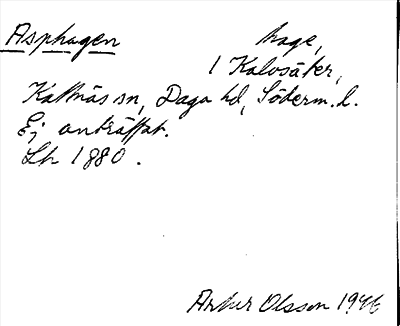 Asphagen hage,
1 Kalvsäter,
Kattnäs sn, Daga hd, Söderm. l.
Ej anträffat.
Lh 1880.
Artur Olsson 1946